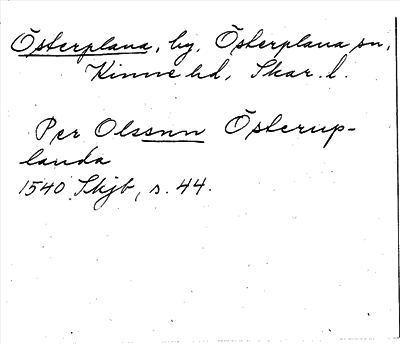 Österplana, by, Österplana sn,
Kinne hd, Skar. l.
Per Olssnn Österup-
landa
1540 Skjb, s. 44.